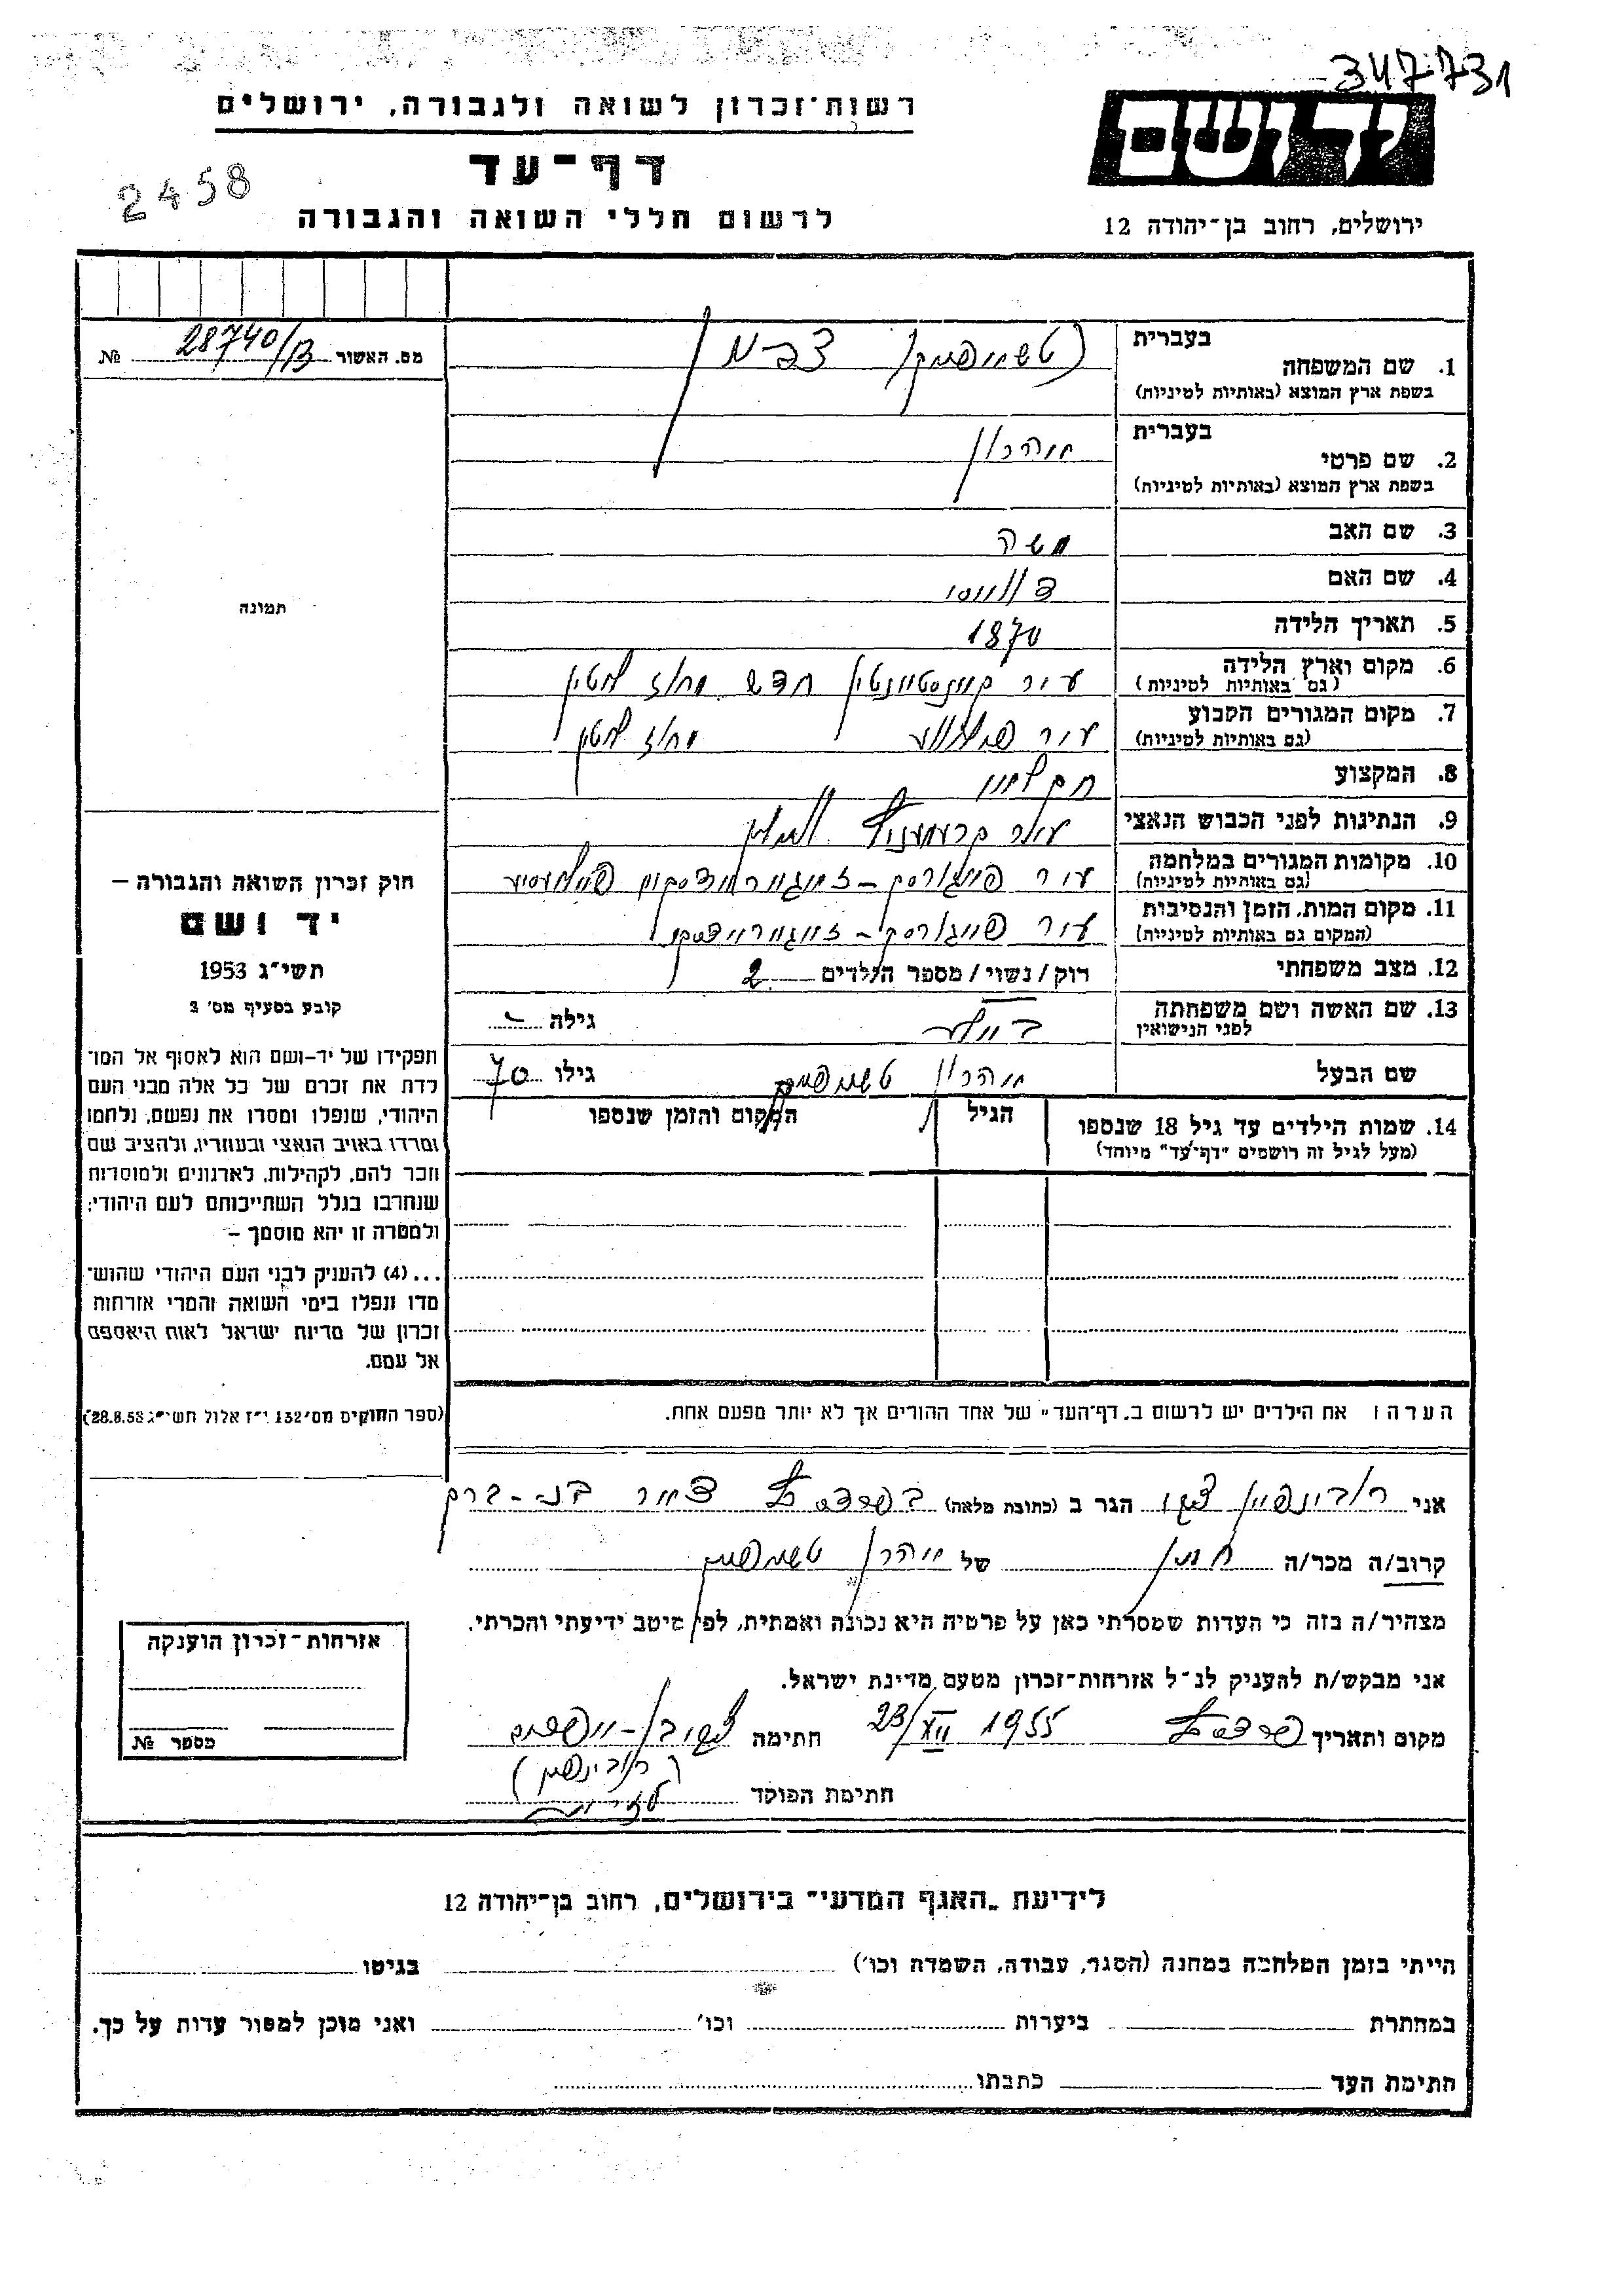 347731
רשות־זכרון לשואה ולגבורה, ירושלים
יד ושם
דף־עד
2458
לרשום חללי השואה והגבורה
ירושלים, רחוב בן־יהודה 12
בעברית
1. שם המשפחה
בשפת ארץ המוצא (באותיות לטיניות)
מס. האשור 28740/B №
בעברית
2. שם פרטי אהרון
בשפת ארץ המוצא (באותיות לטיניות)
3. שם האב משה
4. שם האם
5. תאריך הלידה 1870
6. מקום וארץ הלידה
(גם באותיות לטיניות) עיר קאנסטאנטין חדש מחוז
7. מקום המגורים הקבוע
(גם באותיות לטיניות) עיר מחוז
8. המקצוע
9. הנתינות לפני הכבוש הנאצי
10. מקומות המגורים במלחמה
(גם באותיות לטיניות) עיר
11. מקום המות, הזמן והנסיבות
(המקום גם באותיות לטיניות) עיר
12. מצב משפחתי רוק/נשוי/מספר הילדים 2
13. שם האשה ושם משפחתה
לפני הנישואין גילה
שם הבעל אהרון גילו 70
14. שמות הילדים עד גיל 18 שנספו
(מעל לגיל זה רושמים "דף־עד" מיוחד)
הגיל
המקום והזמן שנספו
תמונה
חוק זכרון השואה והגבורה –
יד ושם
תשי״ג 1953
קובע בסעיף מס׳ 2
תפקידו של יד-ושם הוא לאסוף אל המו־
לדת את זכרם של כל אלה מבני העם
היהודי, שנפלו ומסרו את נפשם, נלחמו
ומרדו באויב הנאצי ובעוזריו, ולהציב שם
וזכר להם, לקהילות, לארגונים ולמוסדות
שנחרבו בגלל השתייכותם לעם היהודי;
ולמטרה זו יהא מוסמך –
...(4) להעניק לבני העם היהודי שהוש־
מדו ונפלו בימי השואה והמרי אזרחות
זכרון של מדינת ישראל לאות היאספם
אל עמם.
(ספר החוקים מס׳ 132 י״ז אלול תשי״ג 28.8.53)
הערה: את הילדים יש לרשום ב„דף־העד" של אחד ההורים אך לא יותר מפעם אחת.
אני הגר ב (כתובת מלאה) בני-ברק
קרוב/ה מכר/ה חתן של אהרן
מצהיר/ה בזה כי העדות שמסרתי כאן על פרטיה היא נכונה ואמתית, לפי מיטב ידיעתי והכרתי.
אני מבקש/ת להעניק לנ״ל אזרחות־זכרון מטעם מדינת ישראל.
מקום ותאריך 23/XII 1955 חתימה
חתימת הפוקד
אזרחות־זכרון הוענקה
מספר №
לידיעת „האגף המדעי״ בירושלים, רחוב בן־יהודה 12
הייתי בזמן המלחמה במחנה (הסגר, עבודה, השמדה וכו׳) בגיטו
במחתרת ביערות וכו׳ ואני מוכן למסור עדות על כך.
חתימת העד כתבתו